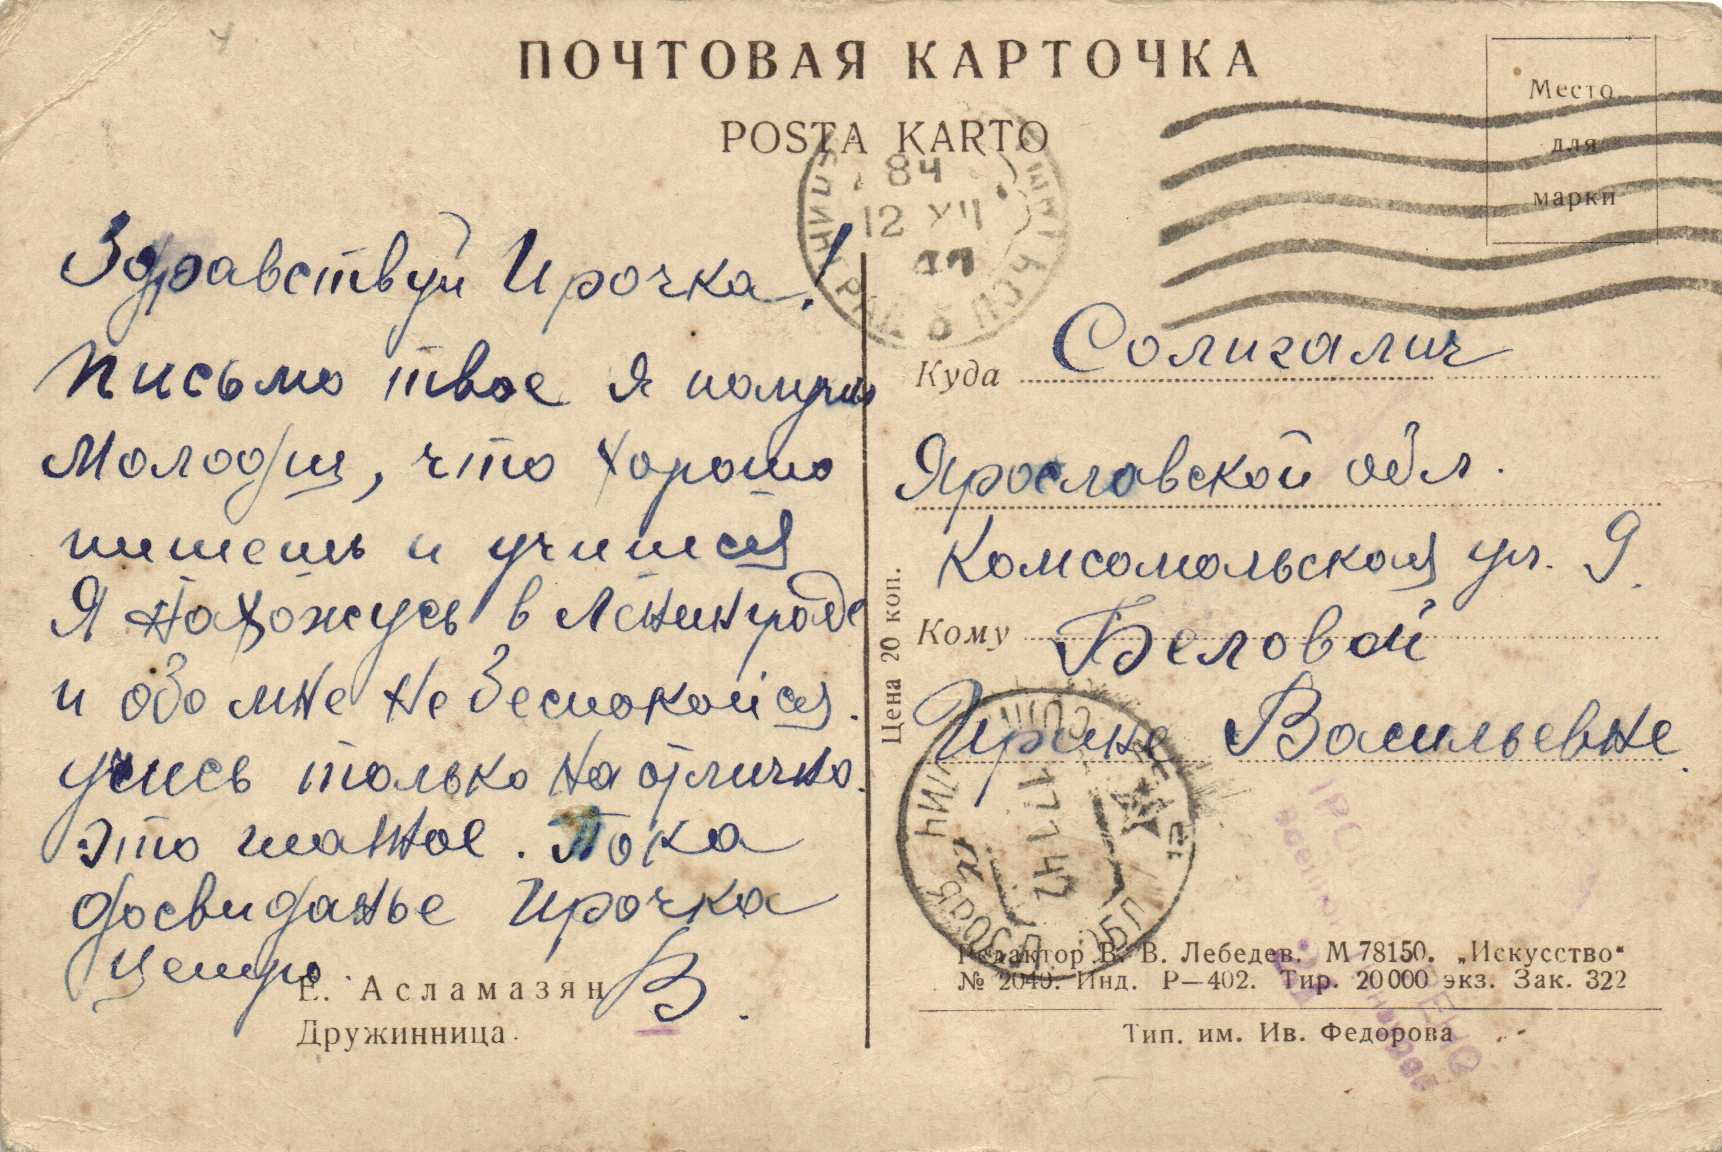 ПОЧТОВАЯ КАРТОЧКА
POSTA KARTO
Место
для
марки
8Ч
12 VII
Здравствуй Ирочка!
Письмо твое я получил
Молодец, что хорошо
пишешь и учишся
Я нахожусь в Ленинграде
и обо мне не беспокойся.
учись только на отлично.
это главное. Пока
досвиданье Ирочка
В.
Е. Асламазян
Дружинница
Цена 20 коп.
Куда Солигалич
Ярославской обл.
Комсомольская ул. 9
Кому Беловой
Ирине Васильевне
17 7 42
Редактор В. В. Лебедев. М 78150. „Искусство“
№ 2040. Инд. Р—402. Тир. 20000 экз. Зак. 322
Тип. им. Ив. Федорова